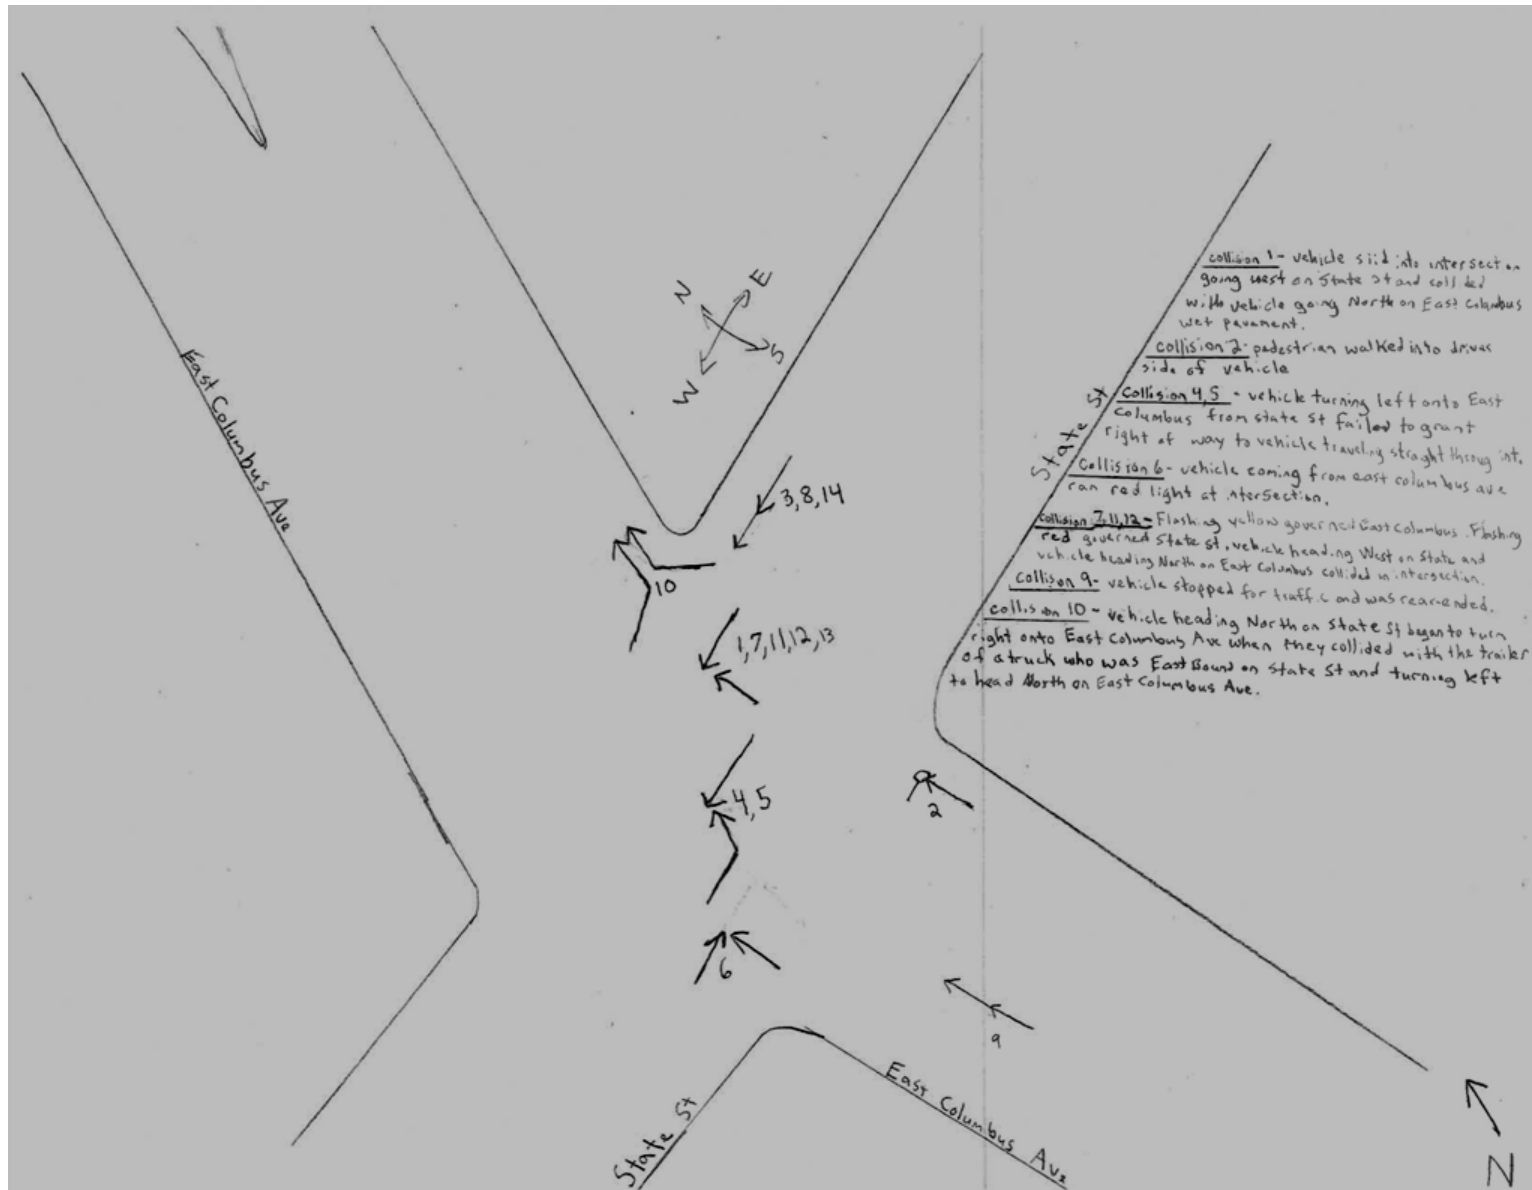 East Columbus Ave
N
E
S
W
3,8,14
10
1,7,11,12,13
4,5
2
6
9
State St
East Columbus Ave
State St
N
collision 1- vehicle slid into intersection
going west on State St and collided
with vehicle going North on East Columbus
wet pavement.
collision 2- pedestrian walked into drives
side of vehicle
Collision 4,5 - vehicle turning left onto East
Columbus from state st failed to grant
right of way to vehicle traveling straght throug int.
Collision 6- vehicle coming from east columbus ave
ran red light at intersection.
collision 7,11,12- Flashing yellow governed East Columbus. Flashing
red governed State st. vehicle heading West on State and
vehicle heading North on East Columbus collided in intersection.
Collison 9- vehicle stopped for traffic and was rear-ended.
collision 10- vehicle heading North on State St began to turn
right onto East Columbus Ave when they collided with the trailer
of a truck who was East Bound on State St and turning left
to head North on East Columbus Ave.